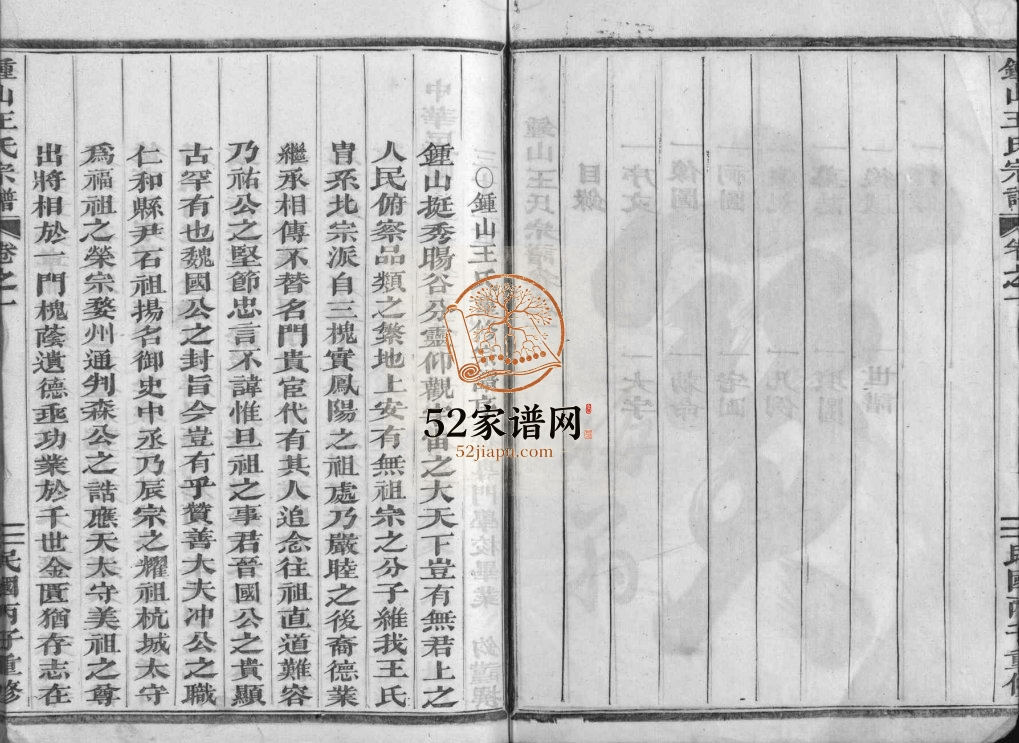 鍾山王氏宗譜 卷之一 二 民國丙子重修
〇鍾山王氏
鍾山挺秀暘谷分靈仰觀宙之大天下豈有無君上之
人民俯察品類之繁地上安有無祖宗之分子維我王氏
冑系北宗派自三槐實鳳陽之祖處乃嚴睦之後裔德業
繼承相傳不替名門貴宦代有其人追念往祖直道難容
乃祐公之堅節忠言不諱惟旦祖之事君晉國公之貴顯
古罕有也魏國公之封旨今豈有乎贊善大夫冲公之職
仁和縣尹石祖揚名御史中丞乃辰宗之耀祖杭城太守
爲福祖之榮宗婺州通判森公之誥應天大守美祖之尊
出將相於一門槐蔭遺德垂功業於千世金匱猶存志在
鍾山王氏宗譜 卷之一 二 民國丙子重修
52家谱网
52jiapu.com